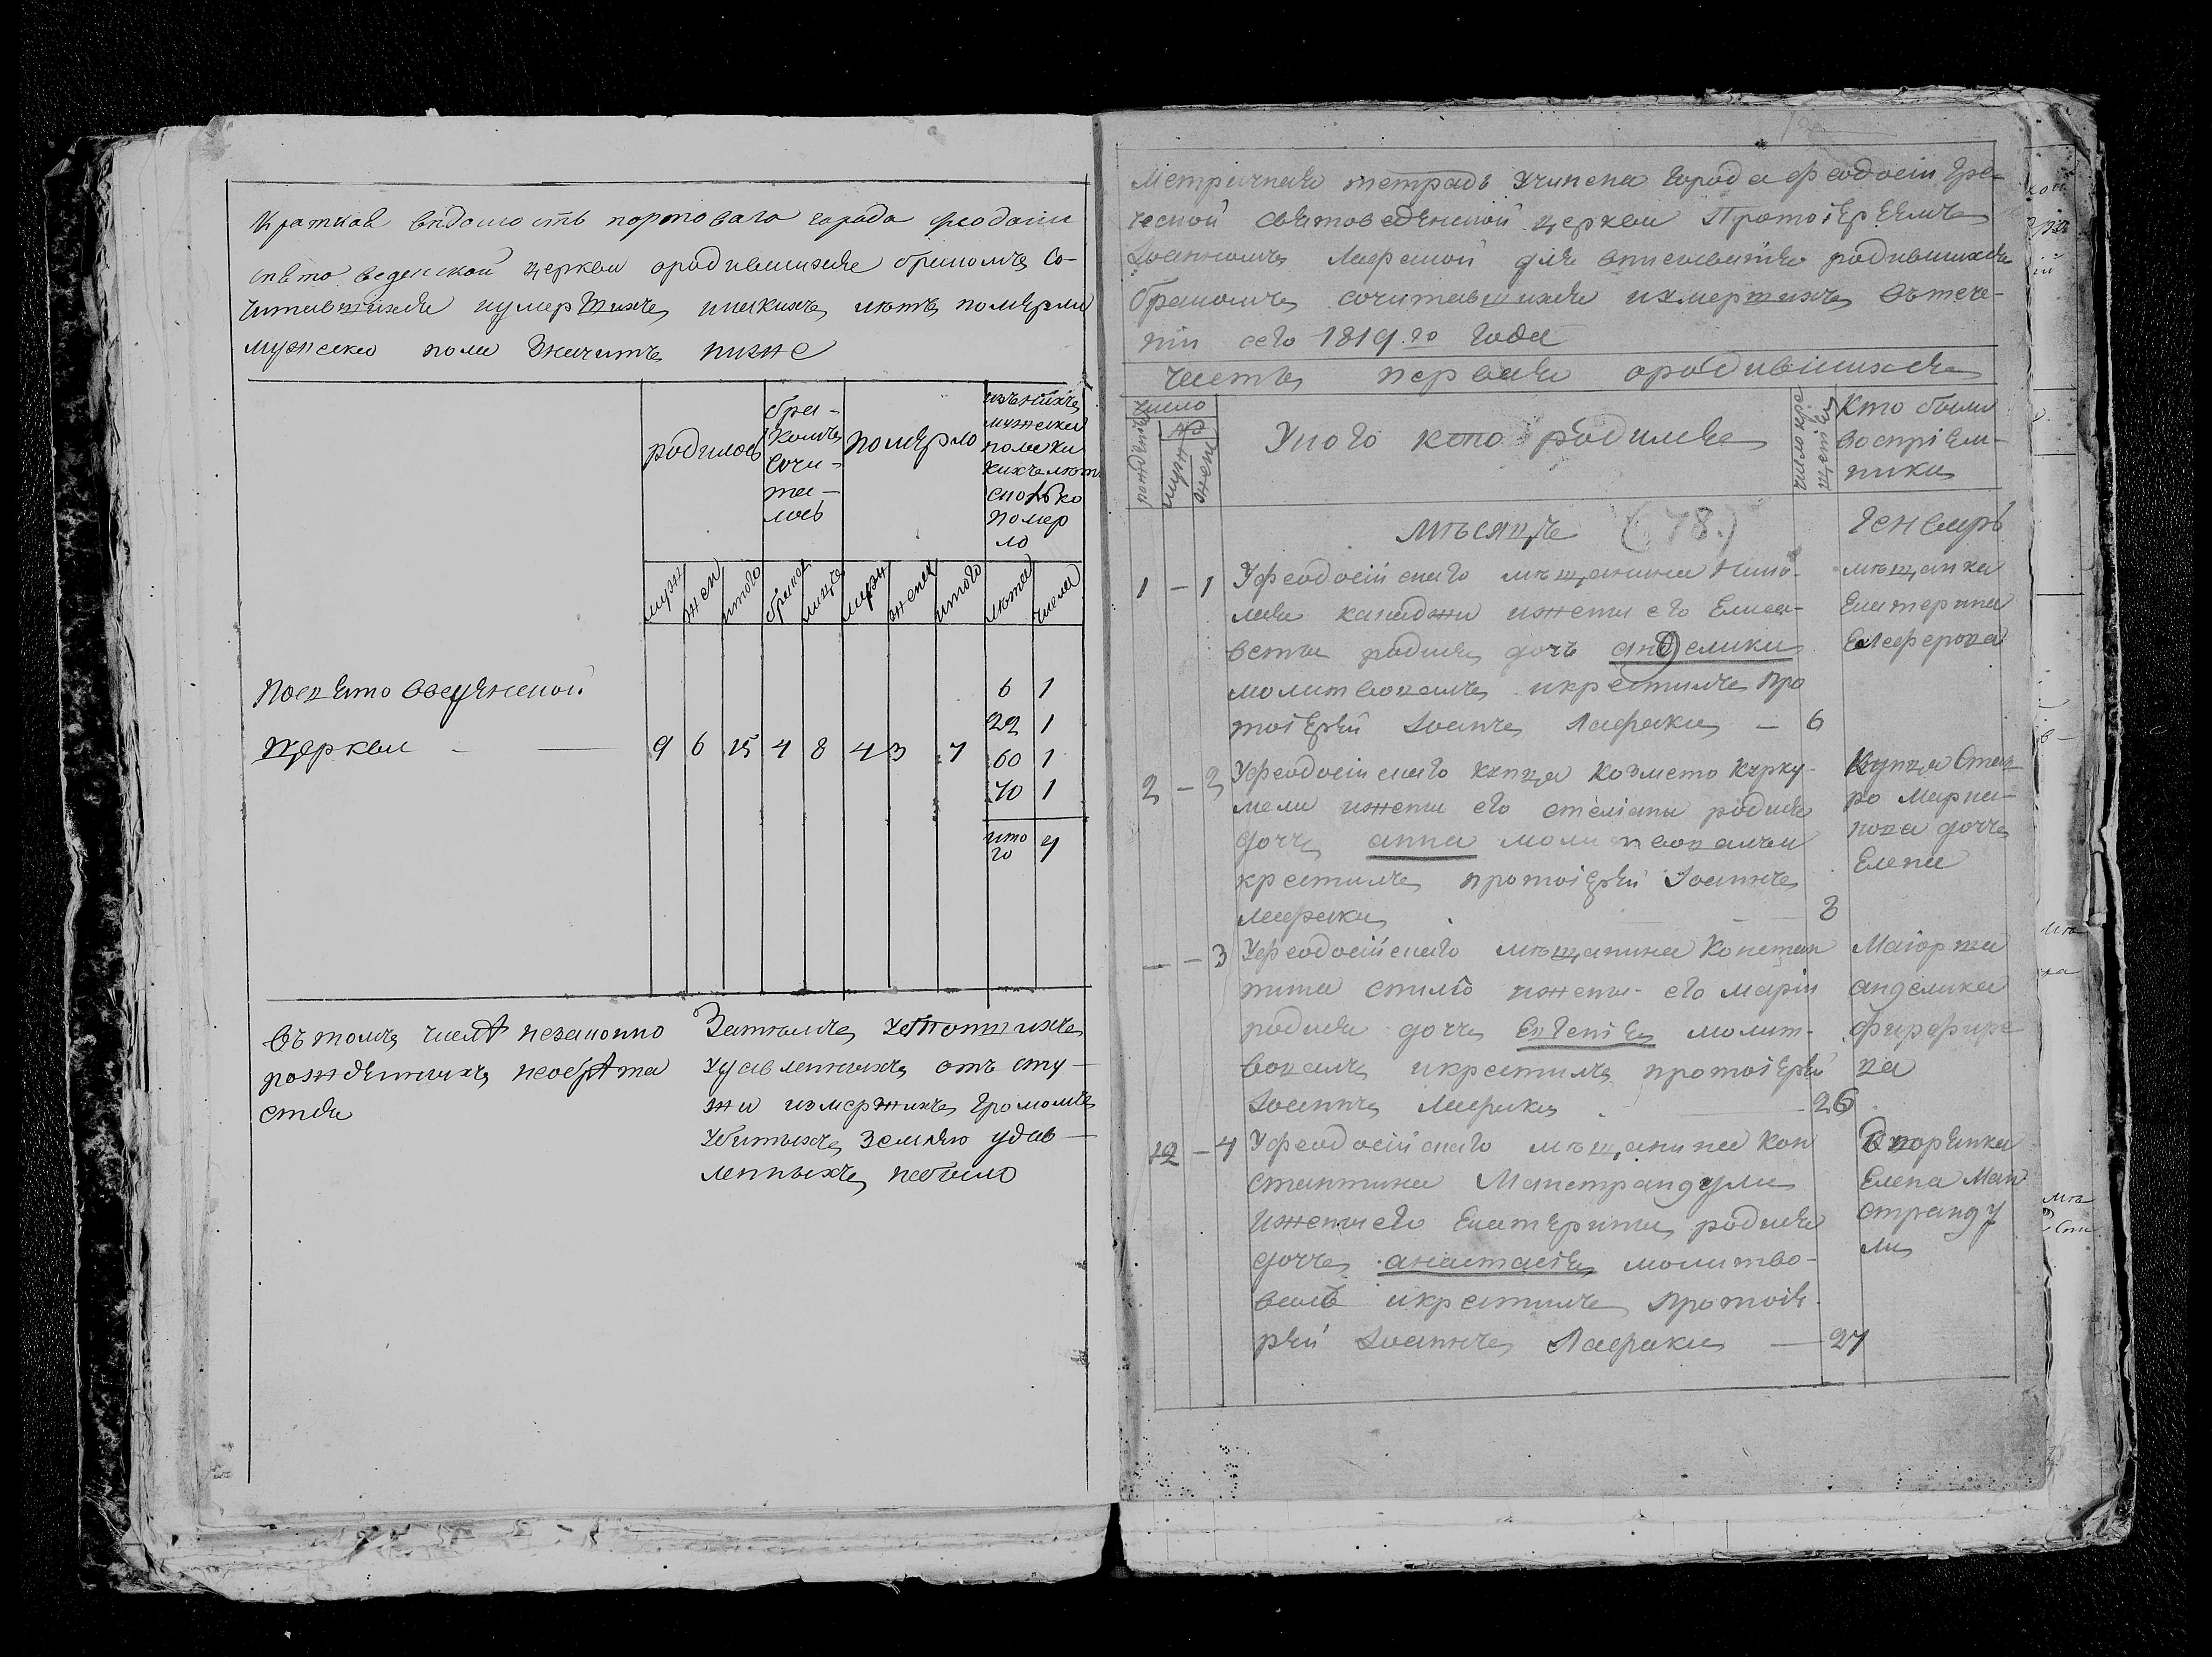 Краткая вѣдомость портоваго города Феодосіи
свято веденской церкви ородившихся бракомъ со-
читавшихся иумершихъ икакихъ лѣтъ померли
мужеска пола значитъ ниже
родилось
бра-
комъ
сочи-
та-
лось
померло
изънихъ
мужеска
пола ка
кихъ лѣтъ
сколько
помер
ло
муж
жен
итого
браков
лицъ
муж
жен
итого
лѣта
числа
Посвято введенской
церкви
9 6 15 4 8 4 3 7
6 1
22 1
60 1
70 1
ито
го
4
въ томъ числѣ незаконно
рожденныхъ необрѣта
ется
Затѣмъ утопшихъ
удавленныхъ отъ сту-
жи измершихъ громомъ
убитыхъ землею удав-
ленныхъ небыло
Метричная тетрадь учинена города Феодосіи Гре-
ческой святоведенской церкви Протоіереемъ
Іоанномъ Лафакой для вписыванія родившихся
бракомъ сочитавшихся иумершихъ въ тече-
ніи сего 1819.го года
часть первая ородившихся
число
рожденія
муж
жен
Укого кто родился
число кре
щенія
Кто были
воспріем-
ники
мѣсяцъ (78.) Генварь
1 - 1 Уфеодосійскаго мѣщанина Нико-
лая канаджи ижены его Елиса-
веты родися дочь анделики
молитвовалъ икрестилъ про
тоіерей Іоанъ Лафаки - 6
мѣщанка
Екатерина
Елеферова
2 - 2 Уфеодосійскаго купца Козмето Курку-
мели ижены его стеліаны родися
дочь анна молитвовалъ и
крестилъ протоіерей Іоаннъ
Лафаки - 8
Купца Став
ро Марка-
пова дочь
Елена
- - 3 Уфеодосійскаго мѣщанина Констан
тина стиліо ижены его Маріи
родися дочь Евгенія молит-
вовалъ икрестилъ протоіерей
Іоаннъ Лафаки - 26
Маіорша
анделика
фирфире
ва
12 - 4 Уфеодосійскаго мѣщанина Кон
стантина Манстрандули
ижены его Екатерины родися
дочь анастасія молитво-
валъ икрестилъ протоіе
рей Іоаннъ Лафаки - 27
Дворянка
Елена Ман
странду
ли